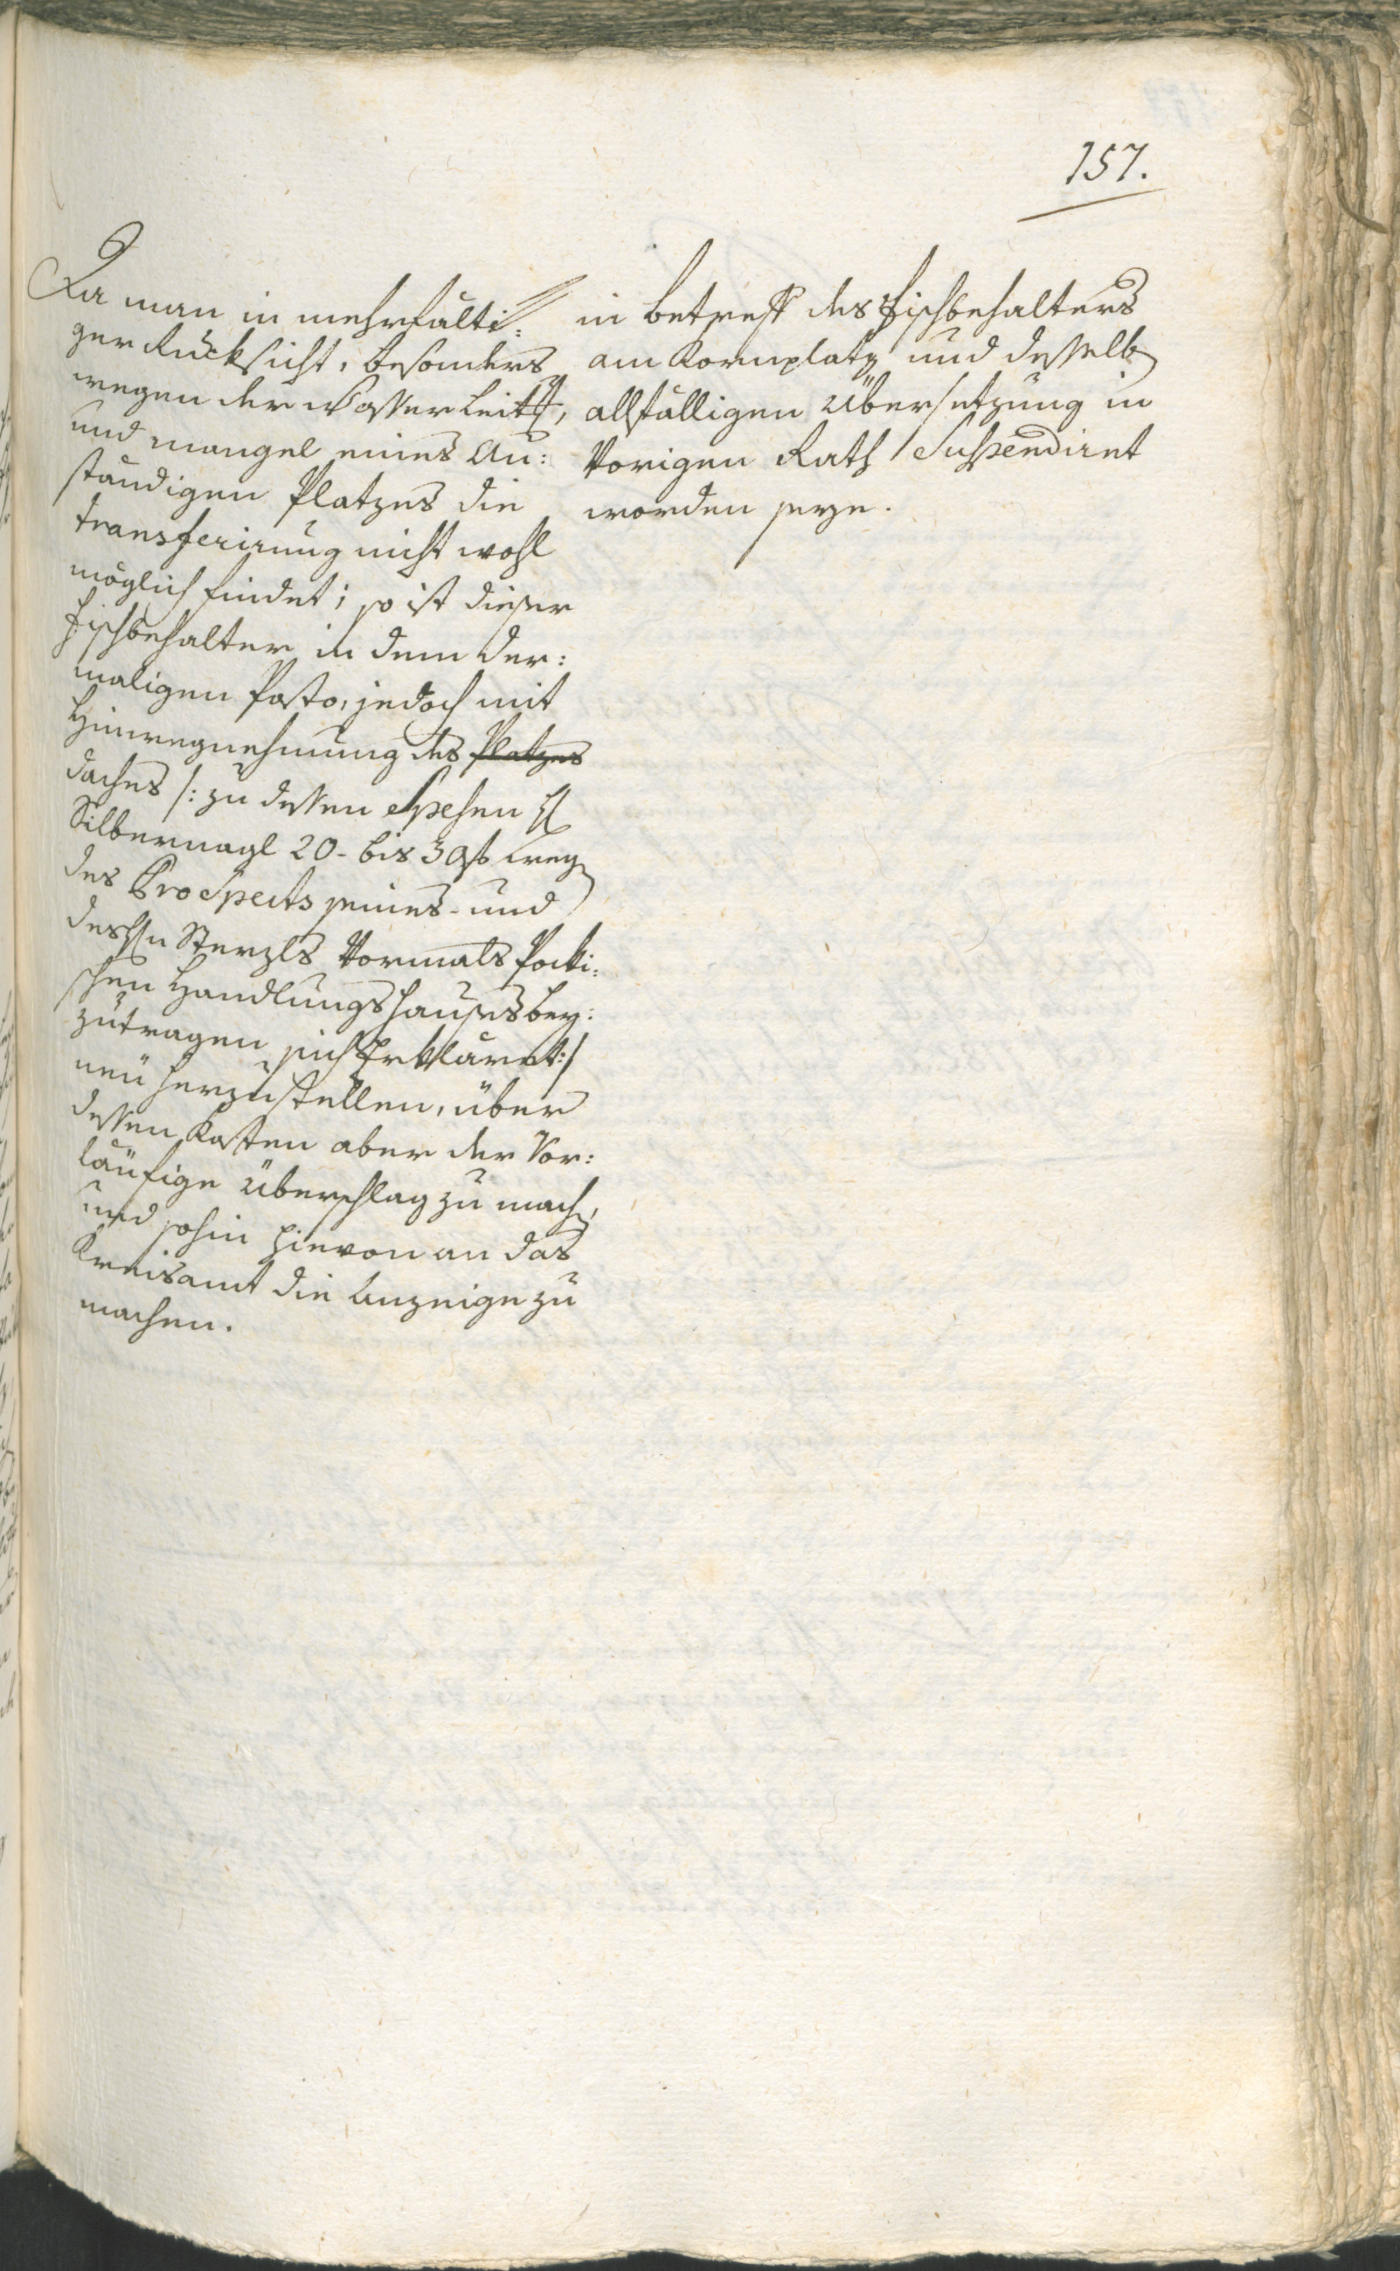 157.
Da man in mehrfälti:
ger Rucksicht, besonders
wegen der Wasserleitg,
und mangel eines An:
ständigen Platzes die
transferirung nicht wohl
möglich findet; so ist dieser
Fischbehalter in dem der:
maligen Posto, jedoch mit
Hinwegnehmung des Platzes
daches /: zu dessen Spesen H
Silbernagl 20- bis 30 f weg
des Prospects seines- und
des Hn Sterzls Vormals Pocki:
schen Handlungshauses bey:
zutragen sich Erkläret :/
neu herzustellen, über
dessen Kosten aber der Vor:
läufige Überschlag zu mach,
und sohin hievon an das
Kreisamt die Anzeige zu
machen.
in betreff des Fischbehalters
am Kornplatz und desselb
allfälligen Übersetzung in
Vorigen Rath Suspendiret
worden seye.